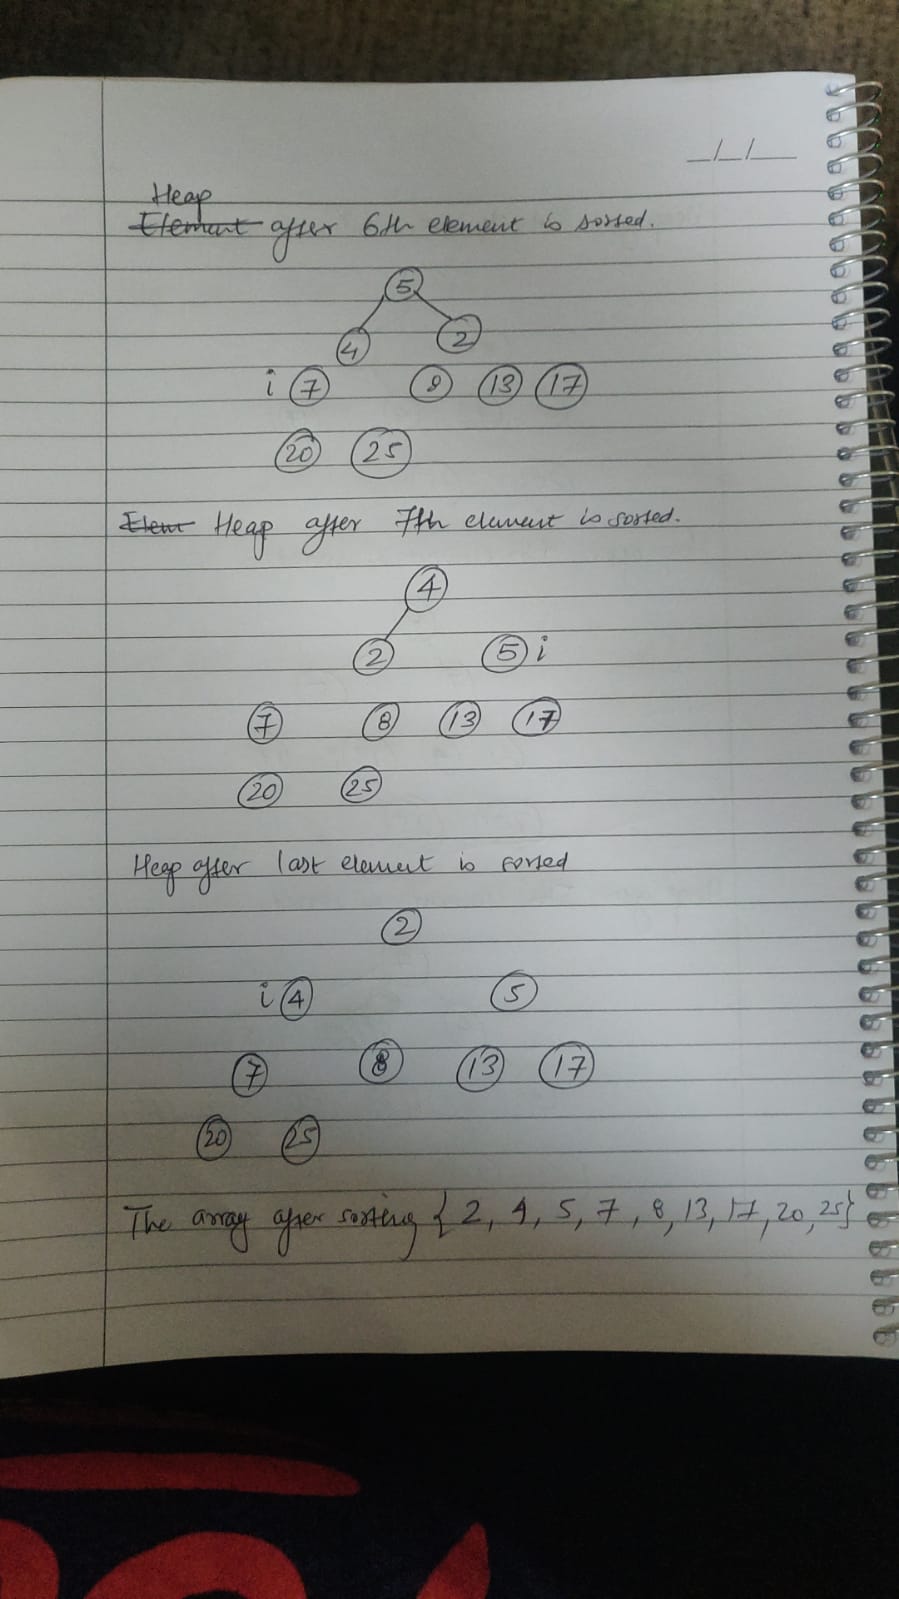 Heap
Element after 6th element is sorted.
5
4 2
i 7 8 13 17
20 25
Elem Heap after 7th element is sorted.
4
2 5 i
7 8 13 17
20 25
Heap after last element is sorted
2
i 4 5
7 8 13 17
20 25
The array after sorting {2, 4, 5, 7, 8, 13, 17, 20, 25}